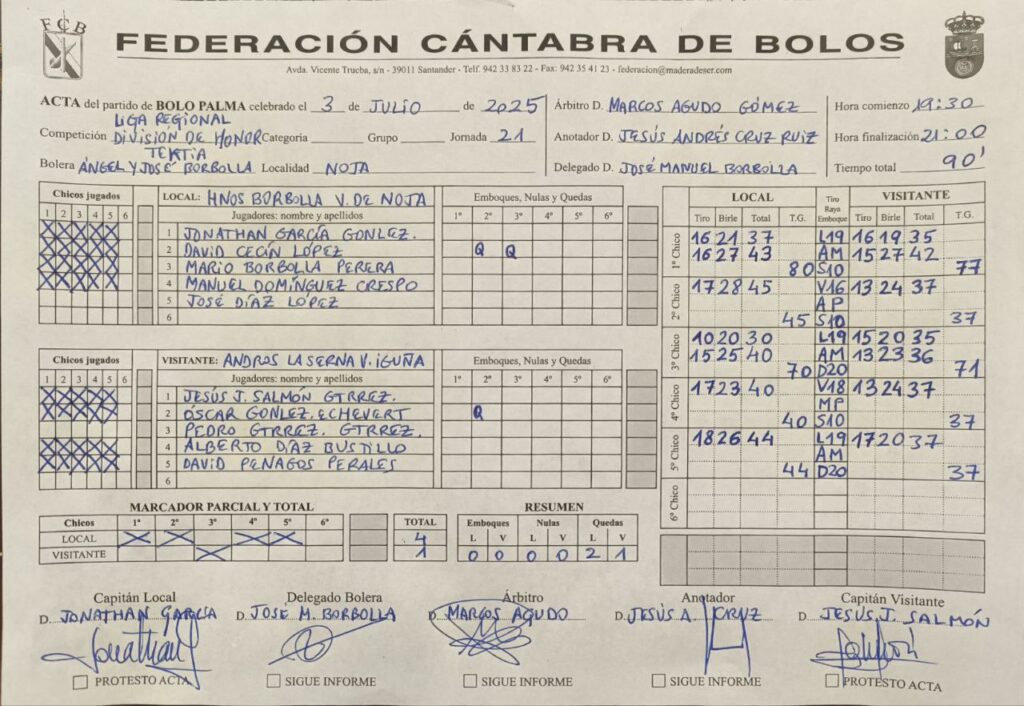 FCB
FEDERACIÓN CÁNTABRA DE BOLOS
Avda. Vicente Trueba, s/n - 39011 Santander - Telf. 942 33 83 22 - Fax: 942 35 41 23 - federacion@maderadeser.com
ACTA del partido de BOLO PALMA celebrado el 3 de JULIO de 2025
Árbitro D. MARCOS AGUDO GÓMEZ
Hora comienzo 19:30
LIGA REGIONAL
Competición DIVISION DE HONOR Categoria Grupo Jornada 21
Anotador D. JESÚS ANDRÉS CRUZ RUIZ
Hora finalización 21:00
TEKTIA
Bolera ÁNGEL Y JOSÉ BORBOLLA Localidad NOJA
Delegado D. JOSÉ MANUEL BORBOLLA
Tiempo total 90'
Chicos jugados LOCAL: HNOS BORBOLLA V. DE NOJA Emboques, Nulas y Quedas
1 2 3 4 5 6 Jugadores: nombre y apellidos 1º 2º 3º 4º 5º 6º
X X X X X 1 JONATHAN GARCÍA GONLEZ.
X X X X X 2 DAVID CECÍN LÓPEZ Q Q
X X X X X 3 MARIO BORBOLLA PERERA
X X X X X 4 MANUEL DOMÍNGUEZ CRESPO
5 JOSÉ DÍAZ LÓPEZ
6
Chicos jugados VISITANTE: ANDROS LA SERNA V. IGUÑA Emboques, Nulas y Quedas
1 2 3 4 5 6 Jugadores: nombre y apellidos 1º 2º 3º 4º 5º 6º
X X X X X 1 JESÚS J. SALMÓN GTRREZ.
X X X X X 2 ÓSCAR GONLEZ. ECHEVERT Q
3 PEDRO GTRREZ. GTRREZ.
X X X X X 4 ALBERTO DÍAZ BUSTILLO
X X X X X 5 DAVID PENAGOS PERALES
6
MARCADOR PARCIAL Y TOTAL
Chicos 1º 2º 3º 4º 5º 6º TOTAL
LOCAL X X X X 4
VISITANTE X 1
RESUMEN
Emboques Nulas Quedas
L V L V L V
0 0 0 0 2 1
LOCAL Tiro Raya Emboque VISITANTE
Tiro Birle Total T.G. Tiro Birle Total T.G.
1º Chico
16 21 37 L19 16 19 35
16 27 43 AM 15 27 42
80 S10 77
2º Chico
17 28 45 V16 13 24 37
AP
45 S10 37
3º Chico
10 20 30 L19 15 20 35
15 25 40 AM 13 23 36
70 D20 71
4º Chico
17 23 40 V18 13 24 37
MP
40 S10 37
5º Chico
18 26 44 L19 17 20 37
AM
44 D20 37
6º Chico
Capitán Local Delegado Bolera Árbitro Anotador Capitán Visitante
D. JONATHAN GARCÍA D. JOSE M. BORBOLLA D. MARCOS AGUDO D. JESÚS A. CRUZ D. JESÚS J. SALMÓN
Jonathan
PROTESTO ACTA SIGUE INFORME SIGUE INFORME SIGUE INFORME PROTESTO ACTA